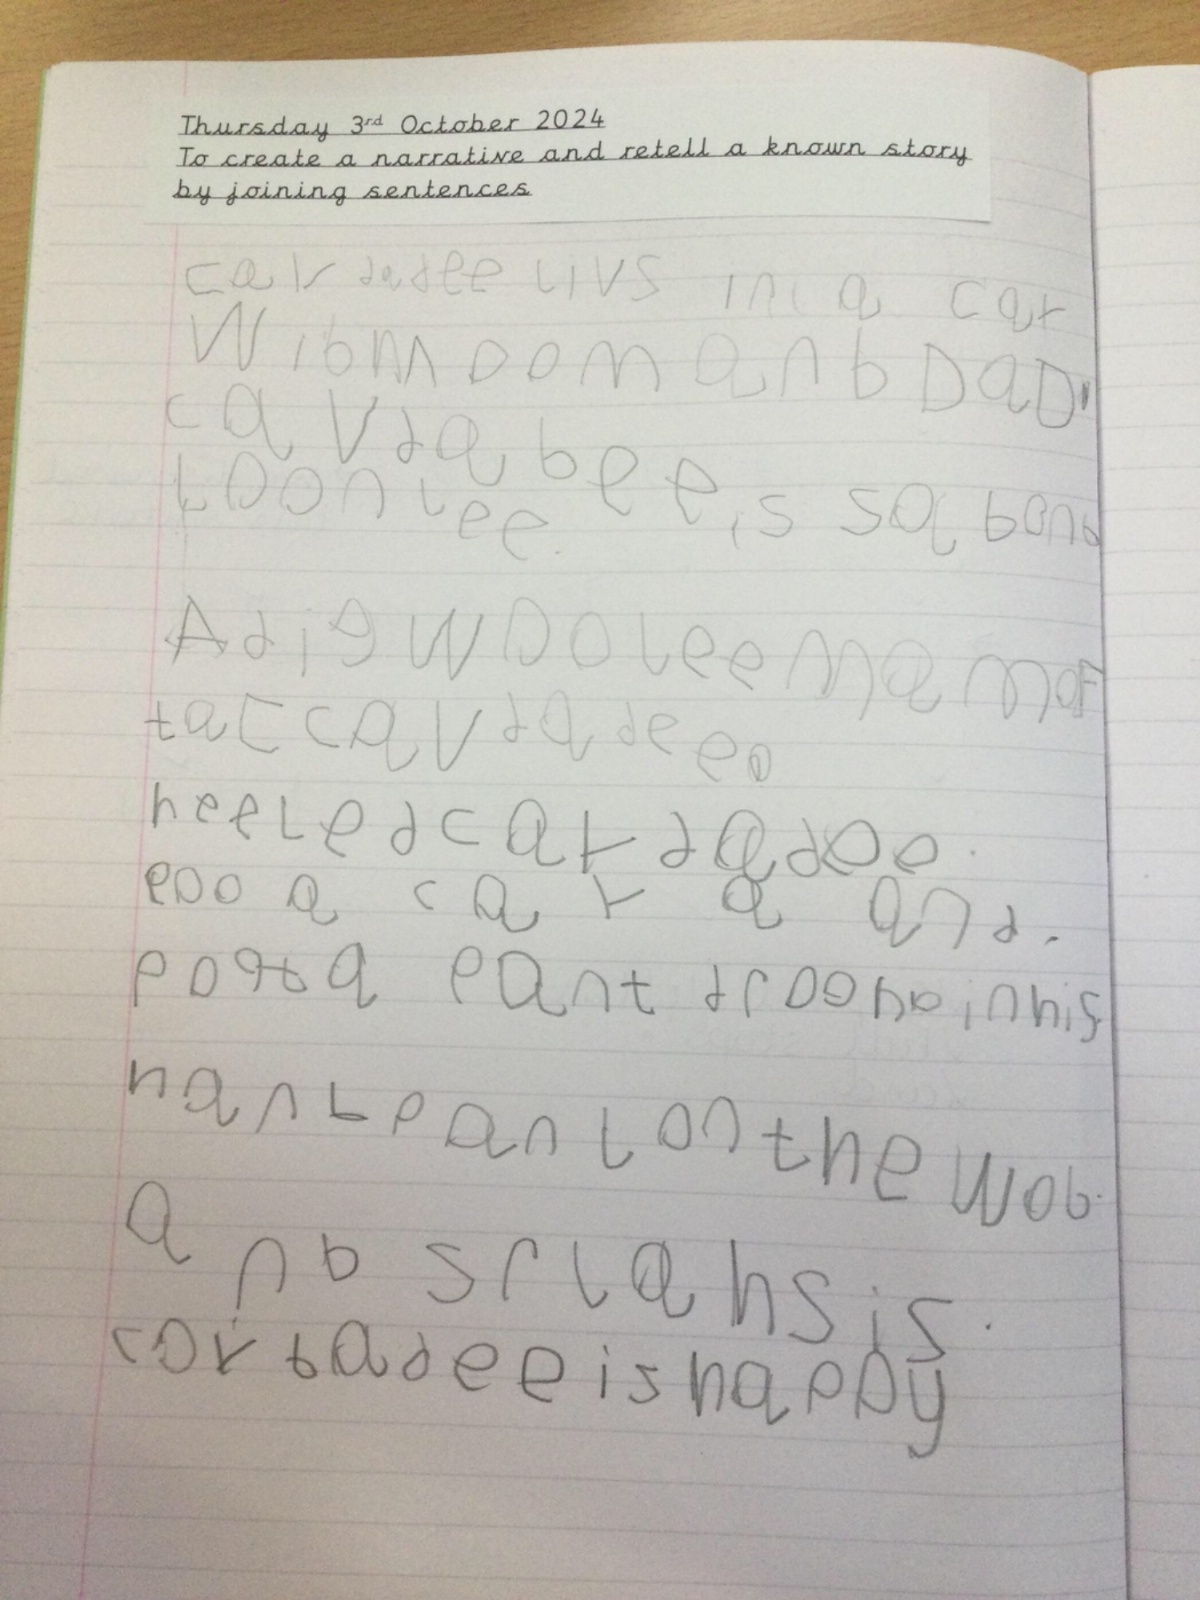 Thursday 3rd October 2024
To create a narrative and retell a known story
by joining sentences
car dadee livs in a car
Wibm DomanbDaD.
cavdabee is saband
loonlee.
AdigWDoleemamof
tac cavdadeeo
heeledcardadoo.
eoo a car a and.
posta pant droonoinhis
hanbpantonthe wob.
anb srlahsis.
carbadeeishappy